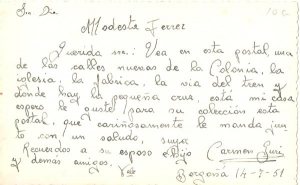 Sra. Dña
Modesta Ferrer
Querida sra.: Vea en esta postal una
de las calles nuevas de la Colonia, la
iglesia, la fabrica, la via del tren y
donde hay la pequeña cruz, está mi casa
espero le guste para su colección esta
postal, que cariñosamente le manda jun
to con un saludo, suya
Recuerdos a su esposo e hijo
y demás amigos. Vale
Carmen
Borgoñá 14-7-51